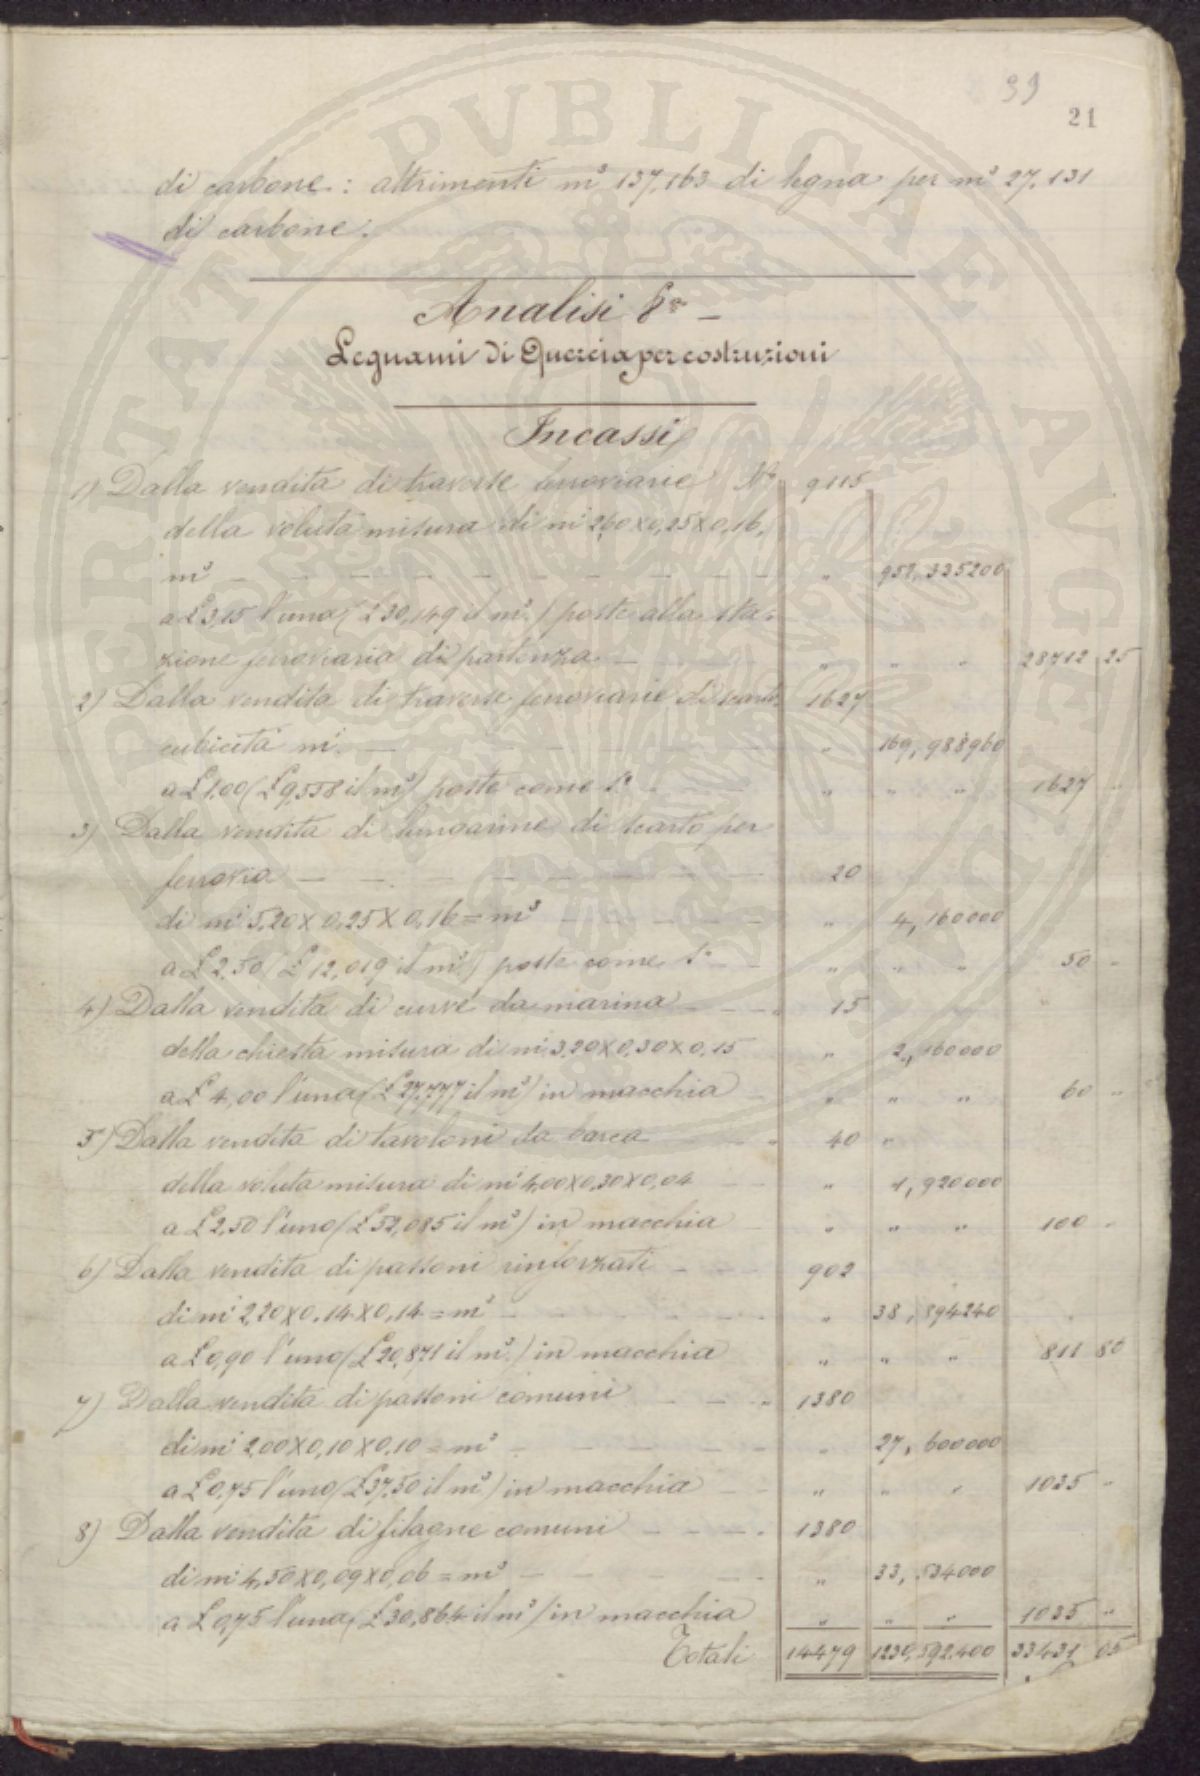 39
21
di carbone: altrimenti m³ 137,163 di legna per m³ 27,131
di carbone.
Analisi 8ª –
Legnami di Quercia per costruzioni
Incassi
1) Dalla vendita di traverse ferroviarie N° 9115
della voluta misura di mⁱ 2,60 x 0,25 x 0,16,
m³ — — — — " 957,335200
a £ 3,15 l'una (£ 30,149 il m³.) poste alla sta-
zione ferroviaria di partenza — " " " 28712 25
2) Dalla vendita di traverse ferroviarie di scarto 1627
cubicità m³. — — " 169,988960
a £ 1,00 (£ 9,558 il m³) poste come 1° " " " 1627 "
3) Dalla vendita di lungarine di scarto per
ferrovia — — — — 20
di mⁱ 5,20 X 0,25 X 0,16 = m³ — — " 4,160000
a £ 2,50 (£ 12,019 il m³) poste come 1° — " " " 50 "
4) Dalla vendita di curve da marina — 15
della chiesta misura di mⁱ 3,20 x 0,30 x 0,15 " 2,160000
a £ 4,00 l'una (£ 27,777 il m³) in macchia " " " 60 "
5) Dalla vendita di tavoloni da barca — 40 "
della voluta misura di mⁱ 4,00 x 0,30 x 0,04 " 1,920000
a £ 2,50 l'uno (£ 52,085 il m³) in macchia " " " 100 "
6) Dalla vendita di passoni rinforzati — 902
di mⁱ 2,20 x 0,14 x 0,14 = m³ — " 38,894240
a £ 0,90 l'uno (£ 20,871 il m³.) in macchia " " " 811 80
7) Dalla vendita di passoni comuni — 1380
di mⁱ 2,00 X 0,10 X 0,10 = m³ — " 27,600000
a £ 0,75 l'uno (£ 37,50 il m³) in macchia — " " " 1035 "
8) Dalla vendita di filagne comuni — 1380
di mⁱ 4,50 x 0,09 x 0,06 = m³ — " 33,534000
a £ 0,75 l'una (£ 30,864 il m³) in macchia " " " 1035 "
Totali 14479 1230,592400 33431 05
PVBLICAE AVGENDAE